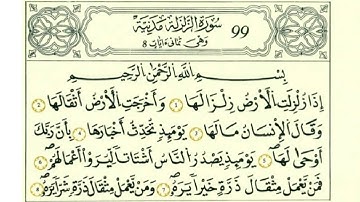 سورة الزلزلة مدنية
وهي ثماني ءايات 8
99
بسم الله الرحمن الرحيم
إذا زلزلت الأرض زلزالها ١ وأخرجت الأرض أثقالها ٢
وقال الإنسان مالها ٣ يومئذ تحدث أخبارها ٤ بأن ربك
أوحى لها ٥ يومئذ يصدر الناس أشتاتا ليروا أعمالهم ٦
فمن يعمل مثقال ذرة خيرا يره ٧ ومن يعمل مثقال ذرة شرا يره ٨